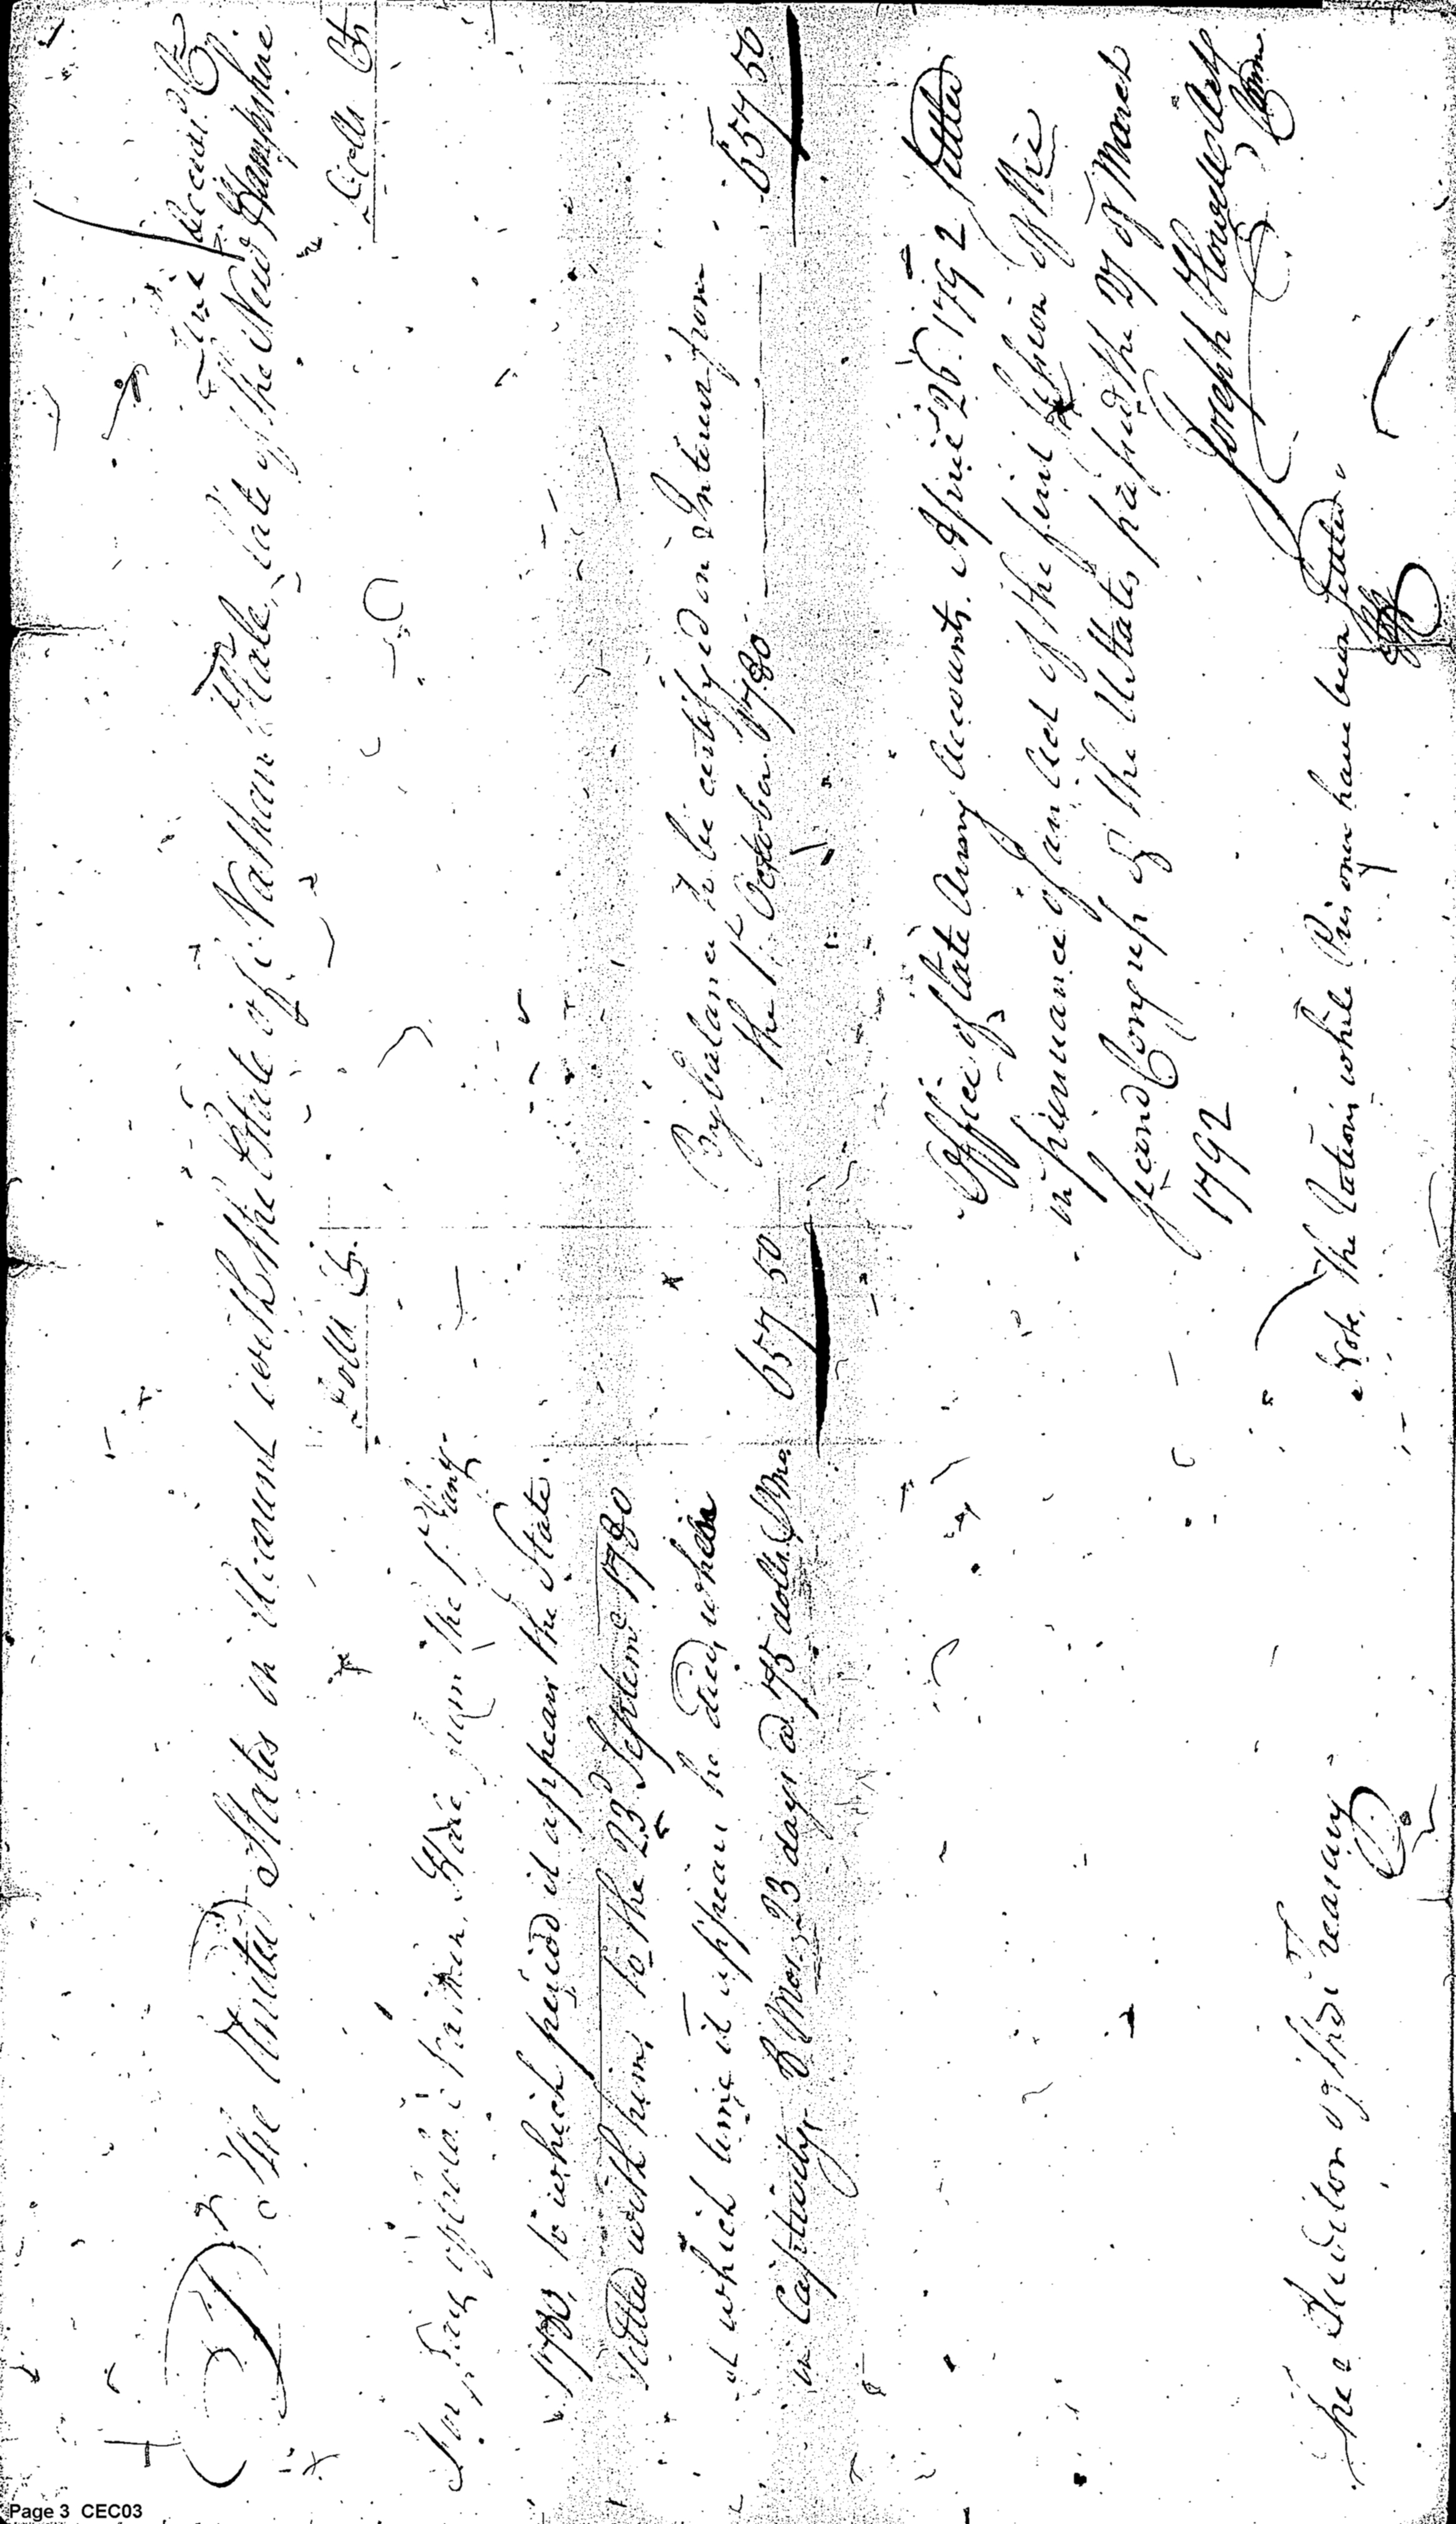 Dr The United States in Account with the Estate of Nathan Hale, late of the New Hampshire Line deceased Cr
Dolls Cts
Dolls Cts
For pay of said Nathan Hale from the 1st Jany
1780, to which period it appears the State
settled with him, to the 23d Septem 1780
at which time it appears he died, when
in Captivity 8 Mos. 23 days @ 75 dolls. P mo.
657 50
By balance to be certified on Interest from
the 1st October 1780
657 50
Office of State Army Accounts. April 26. 1792 Settled
in pursuance of an Act of the first Session of the
second Congress of the U States passed the 27 of March
1792
Joseph Howell
Comr
The Auditor of the Treasury
Note, The Rations while Prisoner have been settled.
Page 3 CEC03